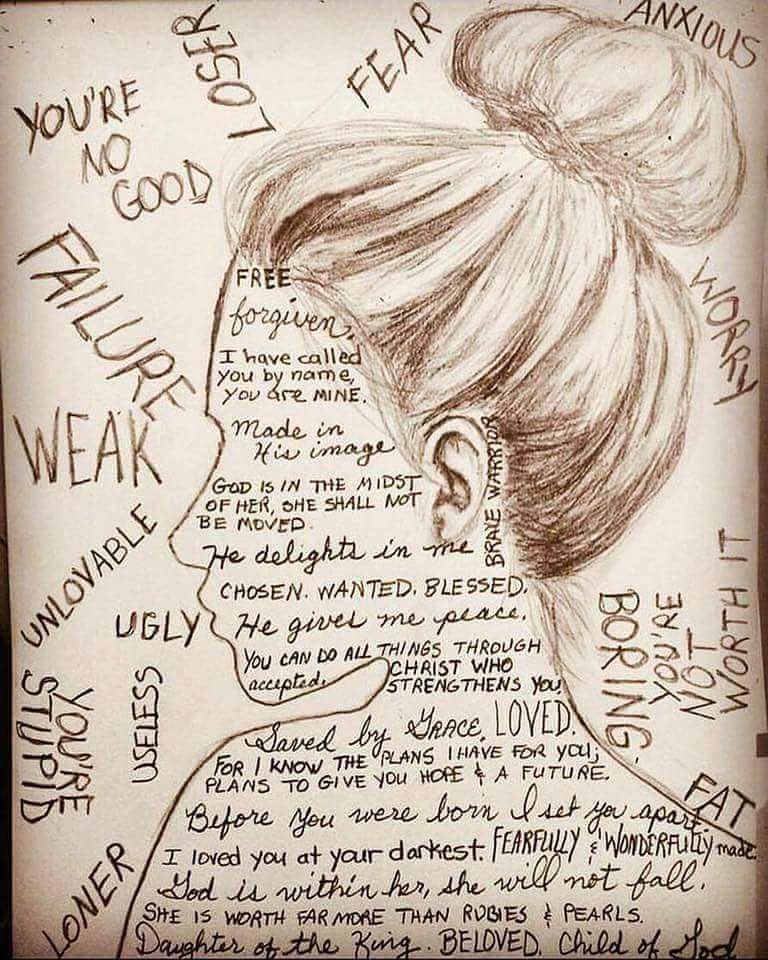 LOSER
FEAR
ANXIOUS
YOU'RE
NO
GOOD
FAILURE
WORRY
WEAK
UNLOVABLE
UGLY
USELESS
YOU'RE
STUPID
LONER
BORING
YOU'RE
NOT
WORTH IT
FAT
FREE
forgiven.
I have called
you by name,
you are MINE.
Made in
His image
GOD IS IN THE MIDST
OF HER, SHE SHALL NOT
BE MOVED.
BRAVE WARRIOR
He delights in me
CHOSEN. WANTED. BLESSED.
He gives me peace.
YOU CAN DO ALL THINGS THROUGH
CHRIST WHO
accepted. STRENGTHENS YOU
Saved by GRACE, LOVED.
FOR I KNOW THE PLANS I HAVE FOR YOU;
PLANS TO GIVE YOU HOPE & A FUTURE.
Before you were born I set you apart.
I loved you at your darkest. FEARFULLY & WONDERFULLY made.
God is within her, she will not fall.
SHE IS WORTH FAR MORE THAN RUBIES & PEARLS.
Daughter of the King. BELOVED. Child of God